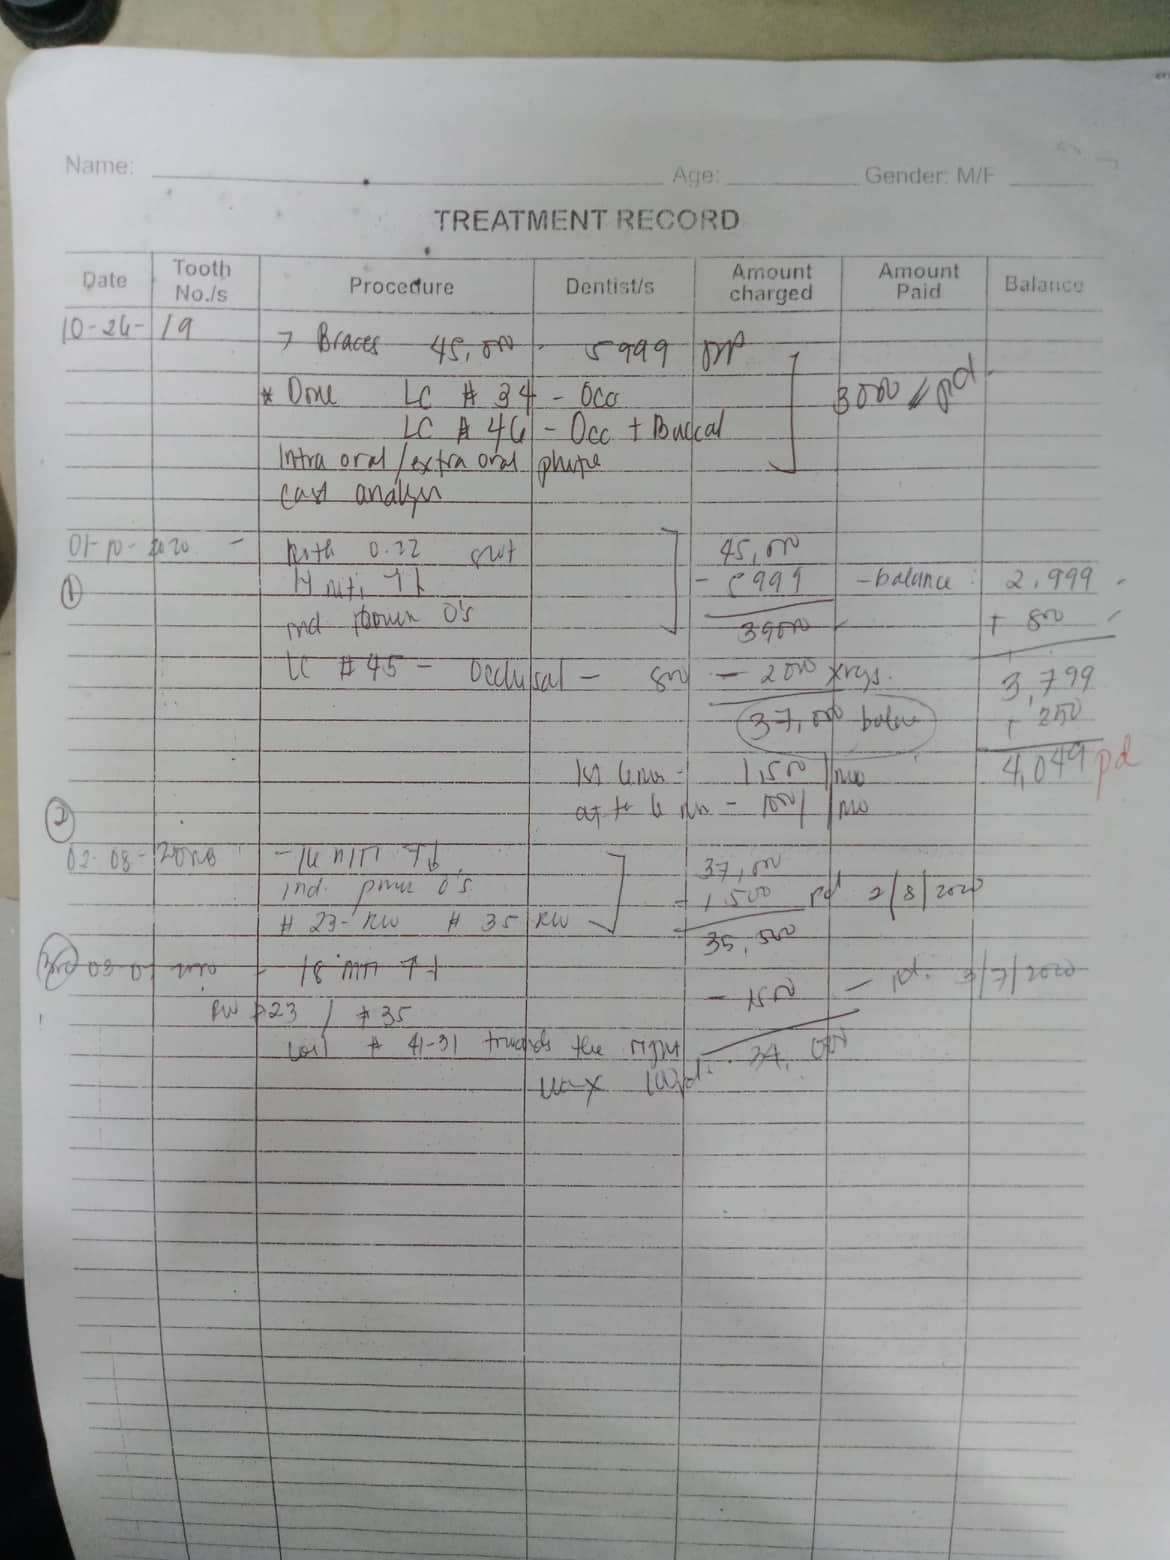 Name: Age: Gender: M/F
TREATMENT RECORD
Date Tooth No./s Procedure Dentist/s Amount charged Amount Paid Balance
10-26-19 7 Braces 45,000 - 5999
* Done LC # 34 - Occ 3000 pd
LC # 46 - Occ + Buccal
Intra oral/extra oral
cast analysis
01-10-2020 - Roth 0.22 slot 45,000
① 14 niti - 5999 - balance : 2,999
ind power O's 39000 + 800
LC # 45 - Occlusal - 800 - 2000 xrys. 3,799
37,000 balance + 250
1st 6 mos - 1,500/mo 4,049 pd
after 6 mos - 1000/mo
②
02-08-2020 - 16 niti
37,000
ind. power O's - 1,500 pd 2/8/2020
# 23- RW # 35 RW 35,500
3rd 03-07-2020 - 18 niti
- 1500 - pd. 3/7/2020
RW #23 / #35
coil # 41-31 towards the right 34,000
wax 100 pd.